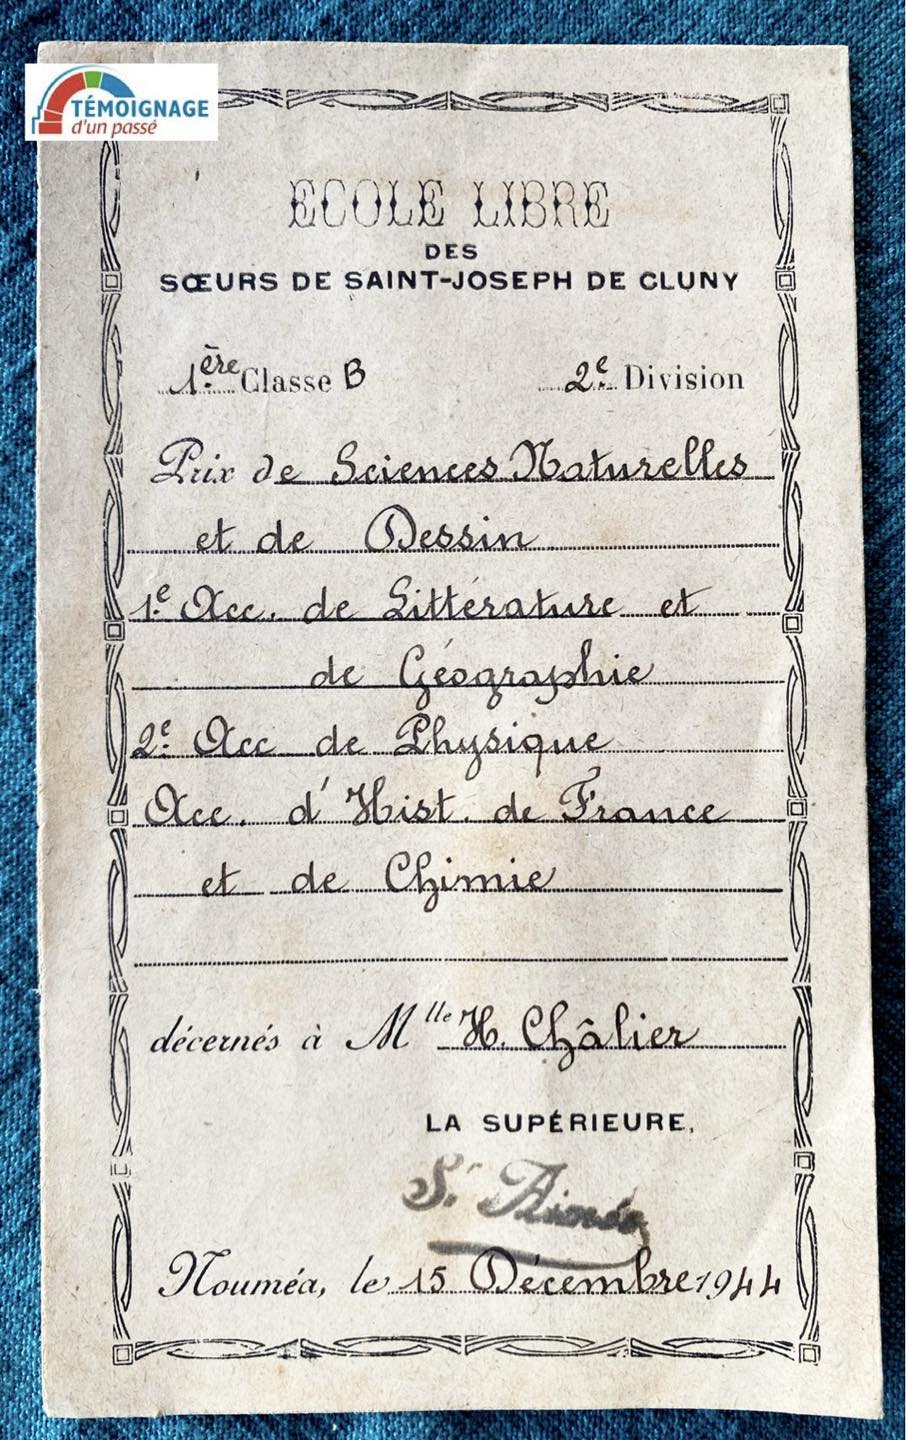 TÉMOIGNAGE
d'un passé
ECOLE LIBRE
DES
SŒURS DE SAINT-JOSEPH DE CLUNY
1ère Classe B 2e Division
Prix de Sciences Naturelles
et de Dessin
1e Acc. de Littérature et
de Géographie
2e Acc de Physique
Acc. d'Hist. de France
et de Chimie
décernés à Mlle H. Châlier
LA SUPÉRIEURE,
Sr Aimée
Nouméa, le 15 Décembre 1944